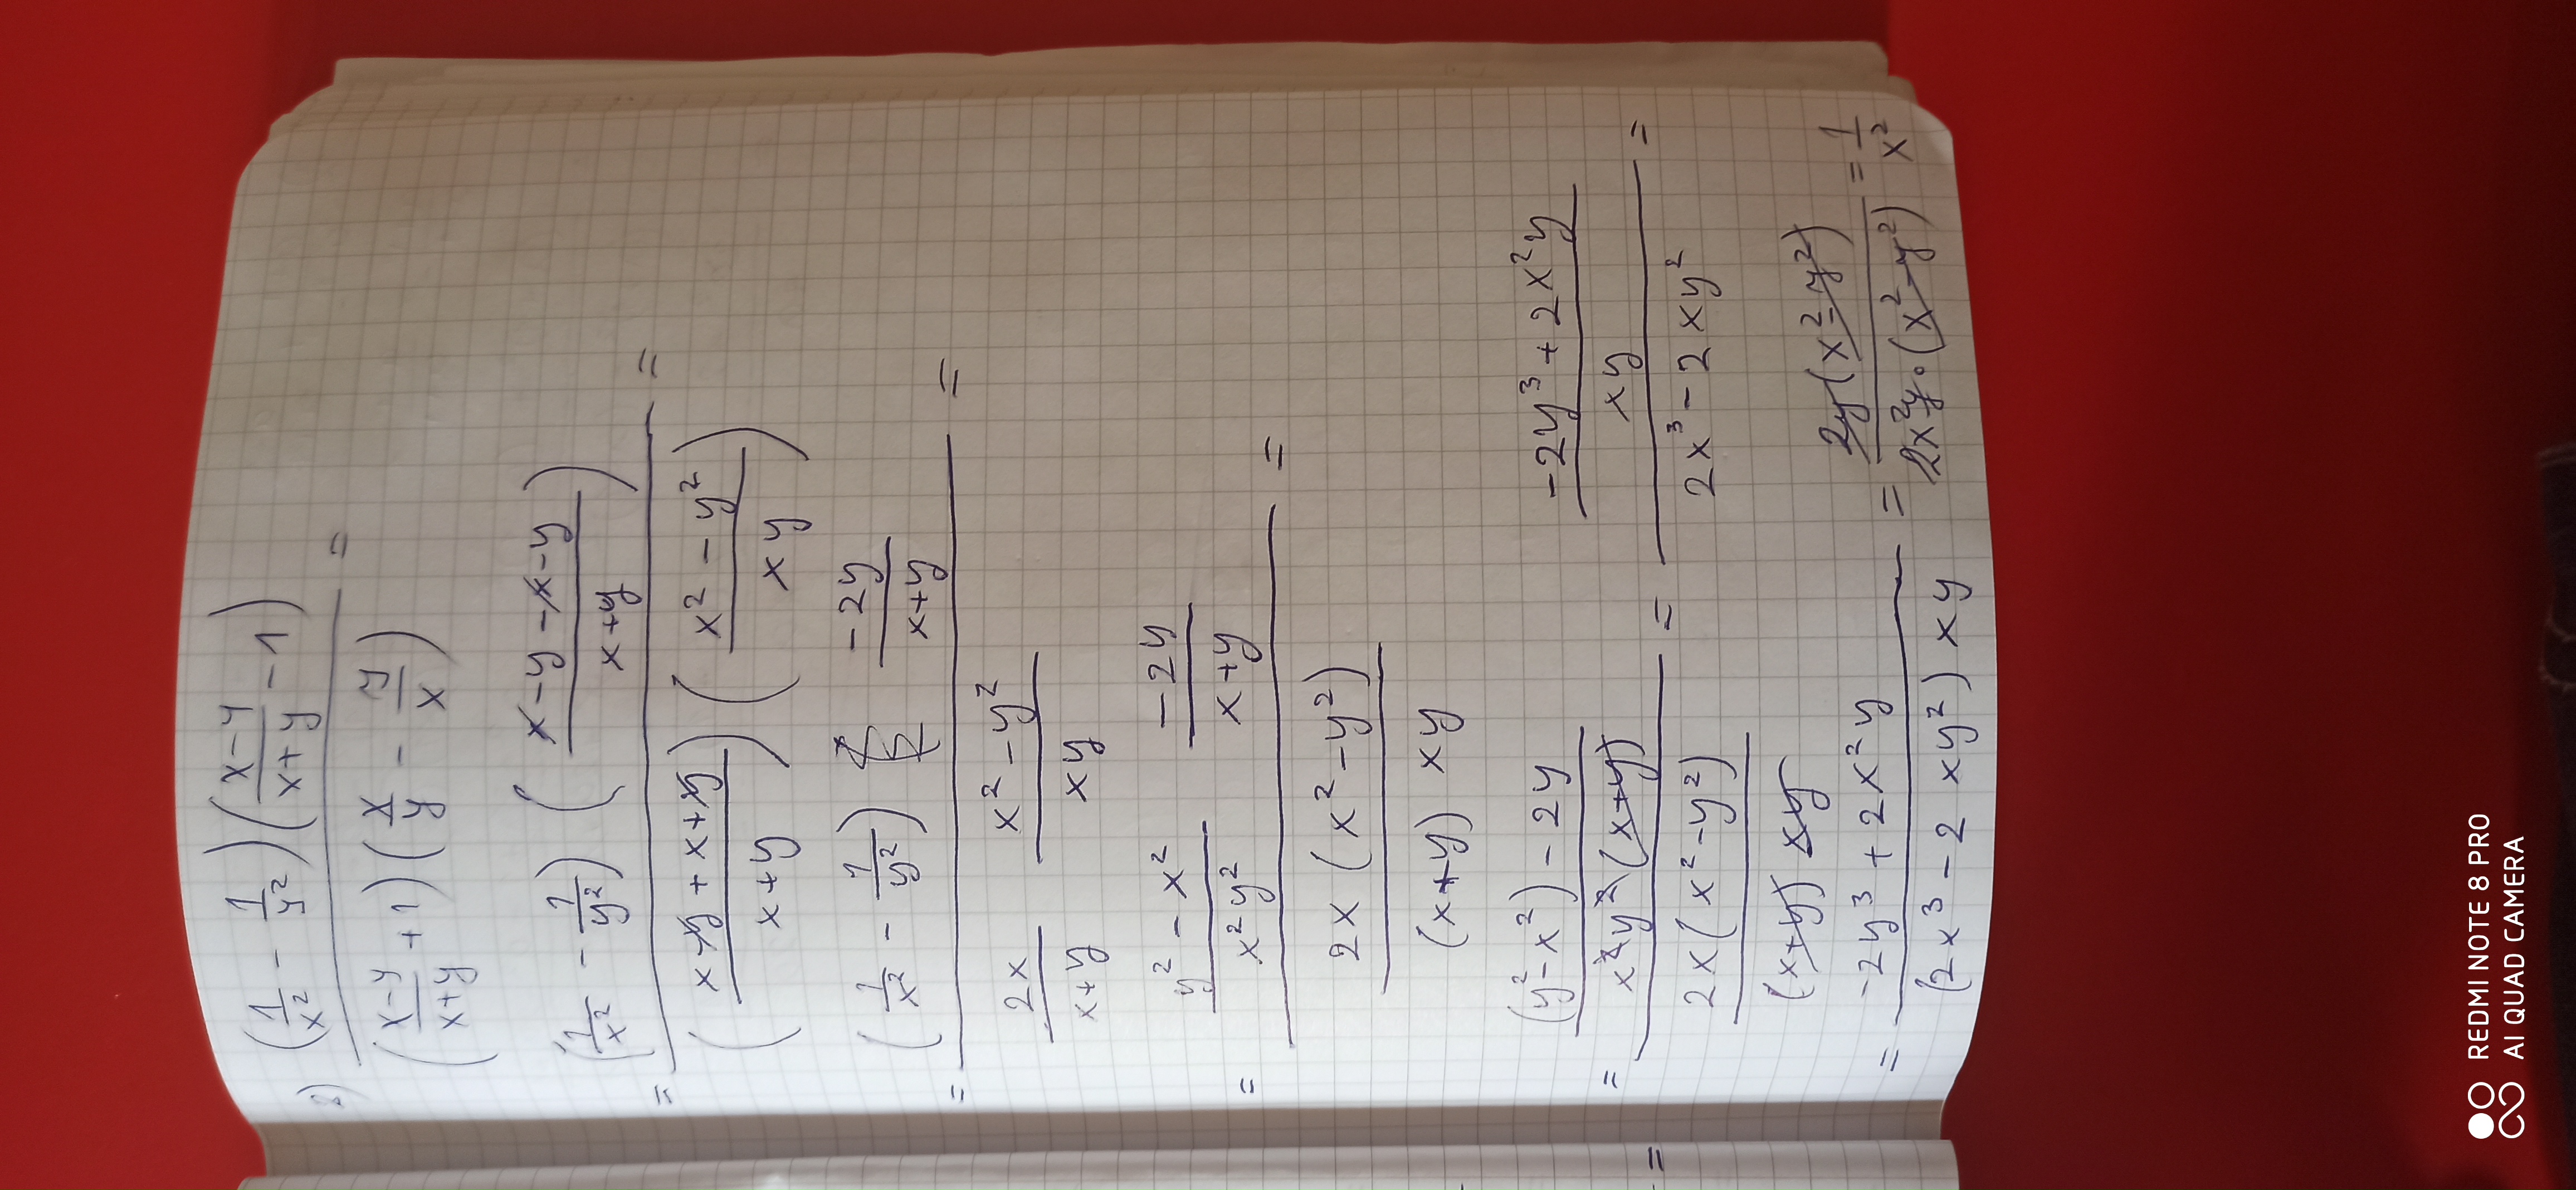 2) ((1/x² - 1/y²)((x-y)/(x+y) - 1)) / (((x-y)/(x+y) + 1)(x/y - y/x)) =
= ((1/x² - 1/y²) ((x-y-x-y)/(x+y))) / (((x-y+x+y)/(x+y)) ((x²-y²)/(xy))) =
= ((1/x² - 1/y²) (-2y)/(x+y)) / ((2x)/(x+y) (x²-y²)/(xy)) =
= ((y²-x²)/(x²y²) (-2y)/(x+y)) / ((2x(x²-y²))/((x+y) xy)) =
= (((y²-x²) - 2y)/(x²y²(x+y))) / ((2x(x²-y²))/((x+y) xy)) = ((-2y³+2x²y)/(xy)) / (2x³-2xy²) =
= (-2y³+2x²y)/((2x³-2xy²) xy) = (2y(x²-y²))/(2x²y·(x²-y²)) = 1/x²
=
REDMI NOTE 8 PRO
AI QUAD CAMERA